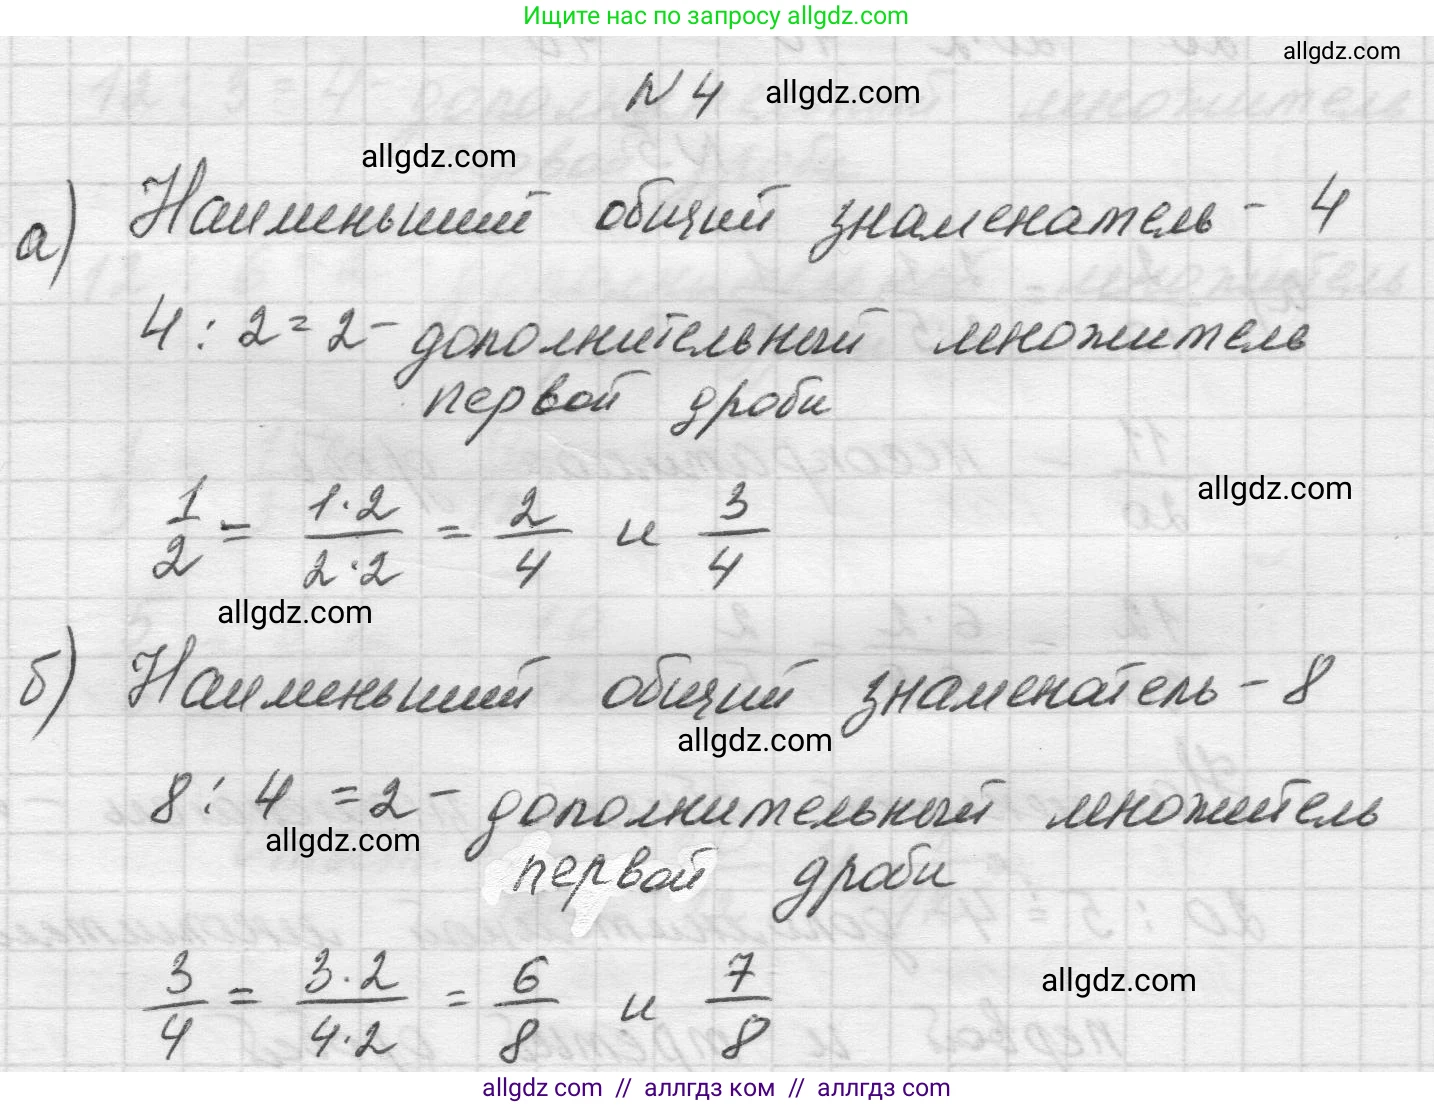 Ищите нас по запросу allgdz.com
allgdz.com
N 4 allgdz.com
allgdz.com
а) Наименьший общий знаменатель - 4
4 : 2 = 2 - дополнительный множитель
первой дроби
1/2 = 1·2/2·2 = 2/4 и 3/4
allgdz.com
allgdz.com
б) Наименьший общий знаменатель - 8
allgdz.com
8 : 4 = 2 - дополнительный множитель
allgdz.com
первой дроби
3/4 = 3·2/4·2 = 6/8 и 7/8
allgdz.com
allgdz com // аллгдз ком // аллгдз com